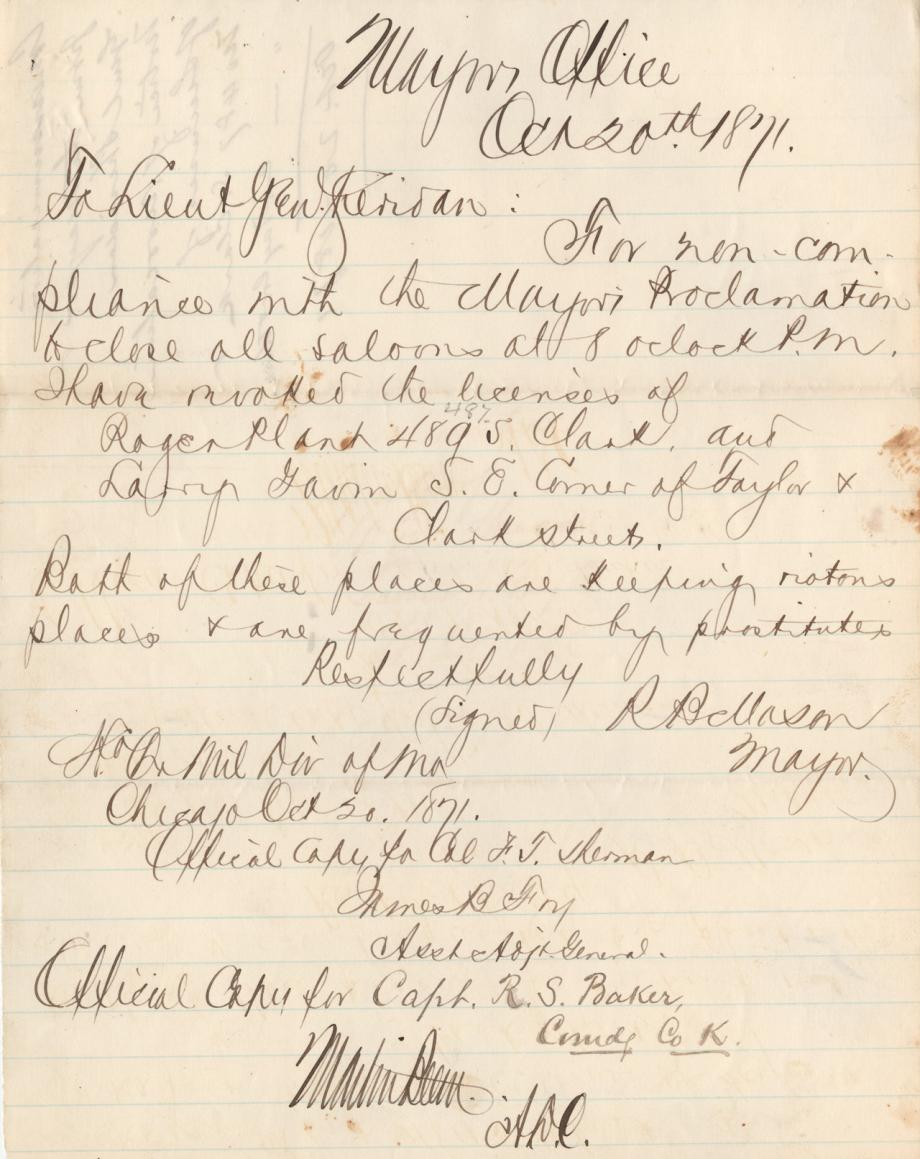 Mayors Office
Oct 20th 1871.
To Lieut Genl Sheridan :
For non-com-
pliance with the Mayors Proclamation
to close all saloons at 8 oclock P.M.
I have revoked the licenses of
487
Roger Plant 489 S. Clark, and
Larry Gavin S. E. Corner of Taylor &
Clark streets.
Both of these places are keeping riotous
places & are frequented by prostitutes
Respectfully
(Signed) R B Mason
Mayor.
Hd Qrs Mil Div of Mo
Chicago Oct 20. 1871.
Official Copy for Col F. T. Sherman
James B Fry
Asst Adjt General.
Official Copy for Capt. R. S. Baker,
Comdg Co K.
A.D.C.